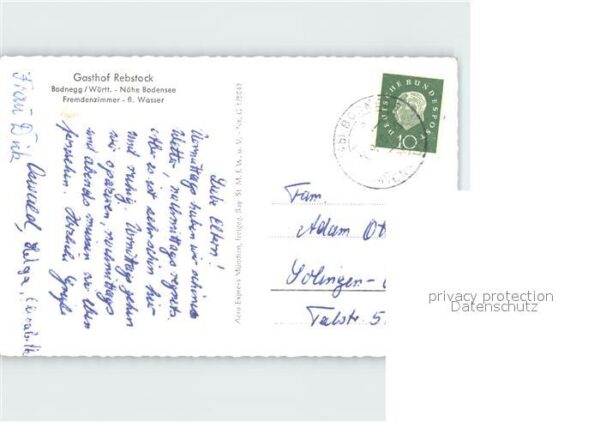 Gasthof Rebstock
Bodnegg/Württ. - Nähe Bodensee
Fremdenzimmer - fl. Wasser
Liebe Eltern!
Vormittags haben wir schönes
Wetter, nachmittags regnets.
Aber es ist sehr schön hier
und ruhig. Vormittags gehen
wir spazieren, nachmittags
und abends müssen wir eben
fernsehen. Herzliche Grüße
Oswald, Helga,
Frau
Aero Express München, Freigeg. Bay. St. M. f. W. u. V.
DEUTSCHE BUNDESPOST
10
Fam.
Adam
Solingen-
Talstr. 5
privacy protection
Datenschutz